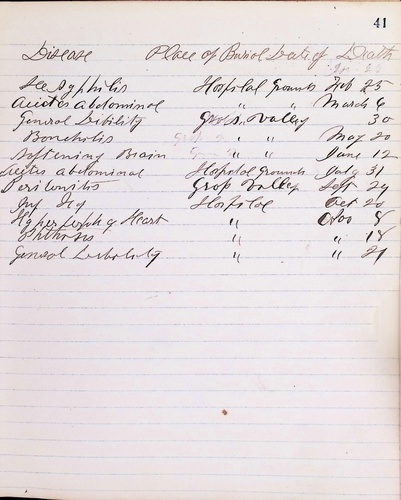 41
Disease Place of Burial Date of Death
Sec Syphilis Hospital Grounds Feb 25
Acites abdominal " " March 6
General Debility Grass Valley 30
Boncholis " " May 20
Softening Brain " " June 12
Acites abdominal Hospital Grounds July 31
Peritonitis Grass Valley Sept 29
Hospital Oct 20
Hypertrophy of Heart " Nov 8
Phthisis " " 18
General Debility " " 29